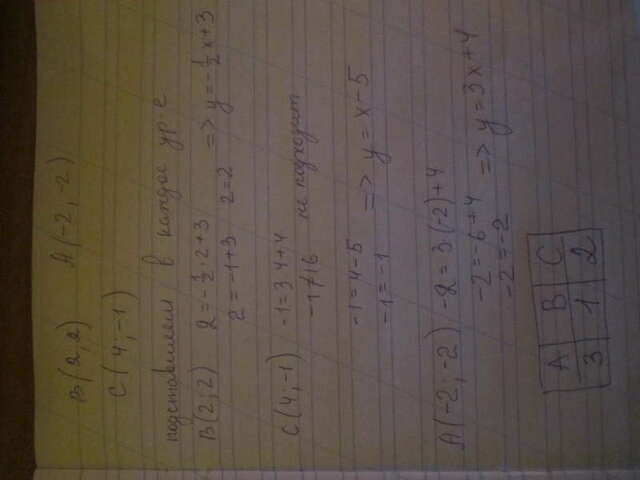 B(2,2) A(-2,-2)
C(4;-1)
подставляем в каждое ур-е
B(2;2) 2=-1/2·2+3 => y=-1/2x+3
2=-1+3 2=2
C(4;-1) -1=3·4+4
-1≠16 не подходит
-1=4-5
-1=-1 => y=x-5
A(-2;-2) -2=3·(-2)+4
-2=-6+4 => y=3x+4
-2=-2
A B C
3 1 2